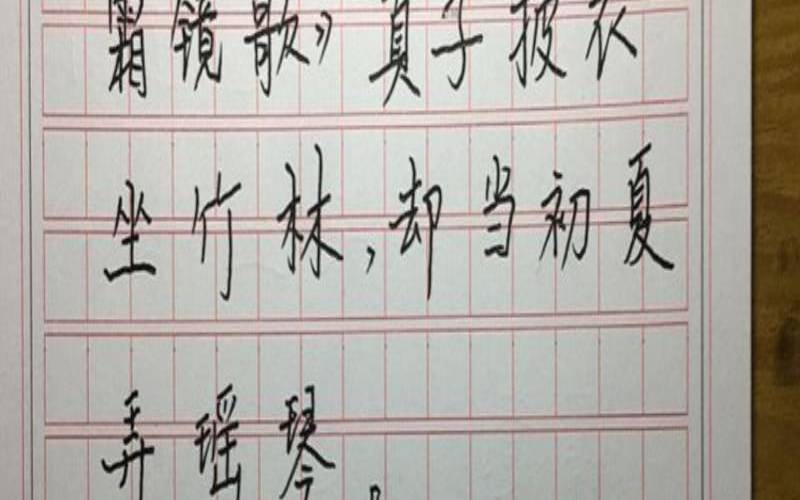 霜镜歌》真子披衣
坐竹林,却当初夏
弄瑶琴。